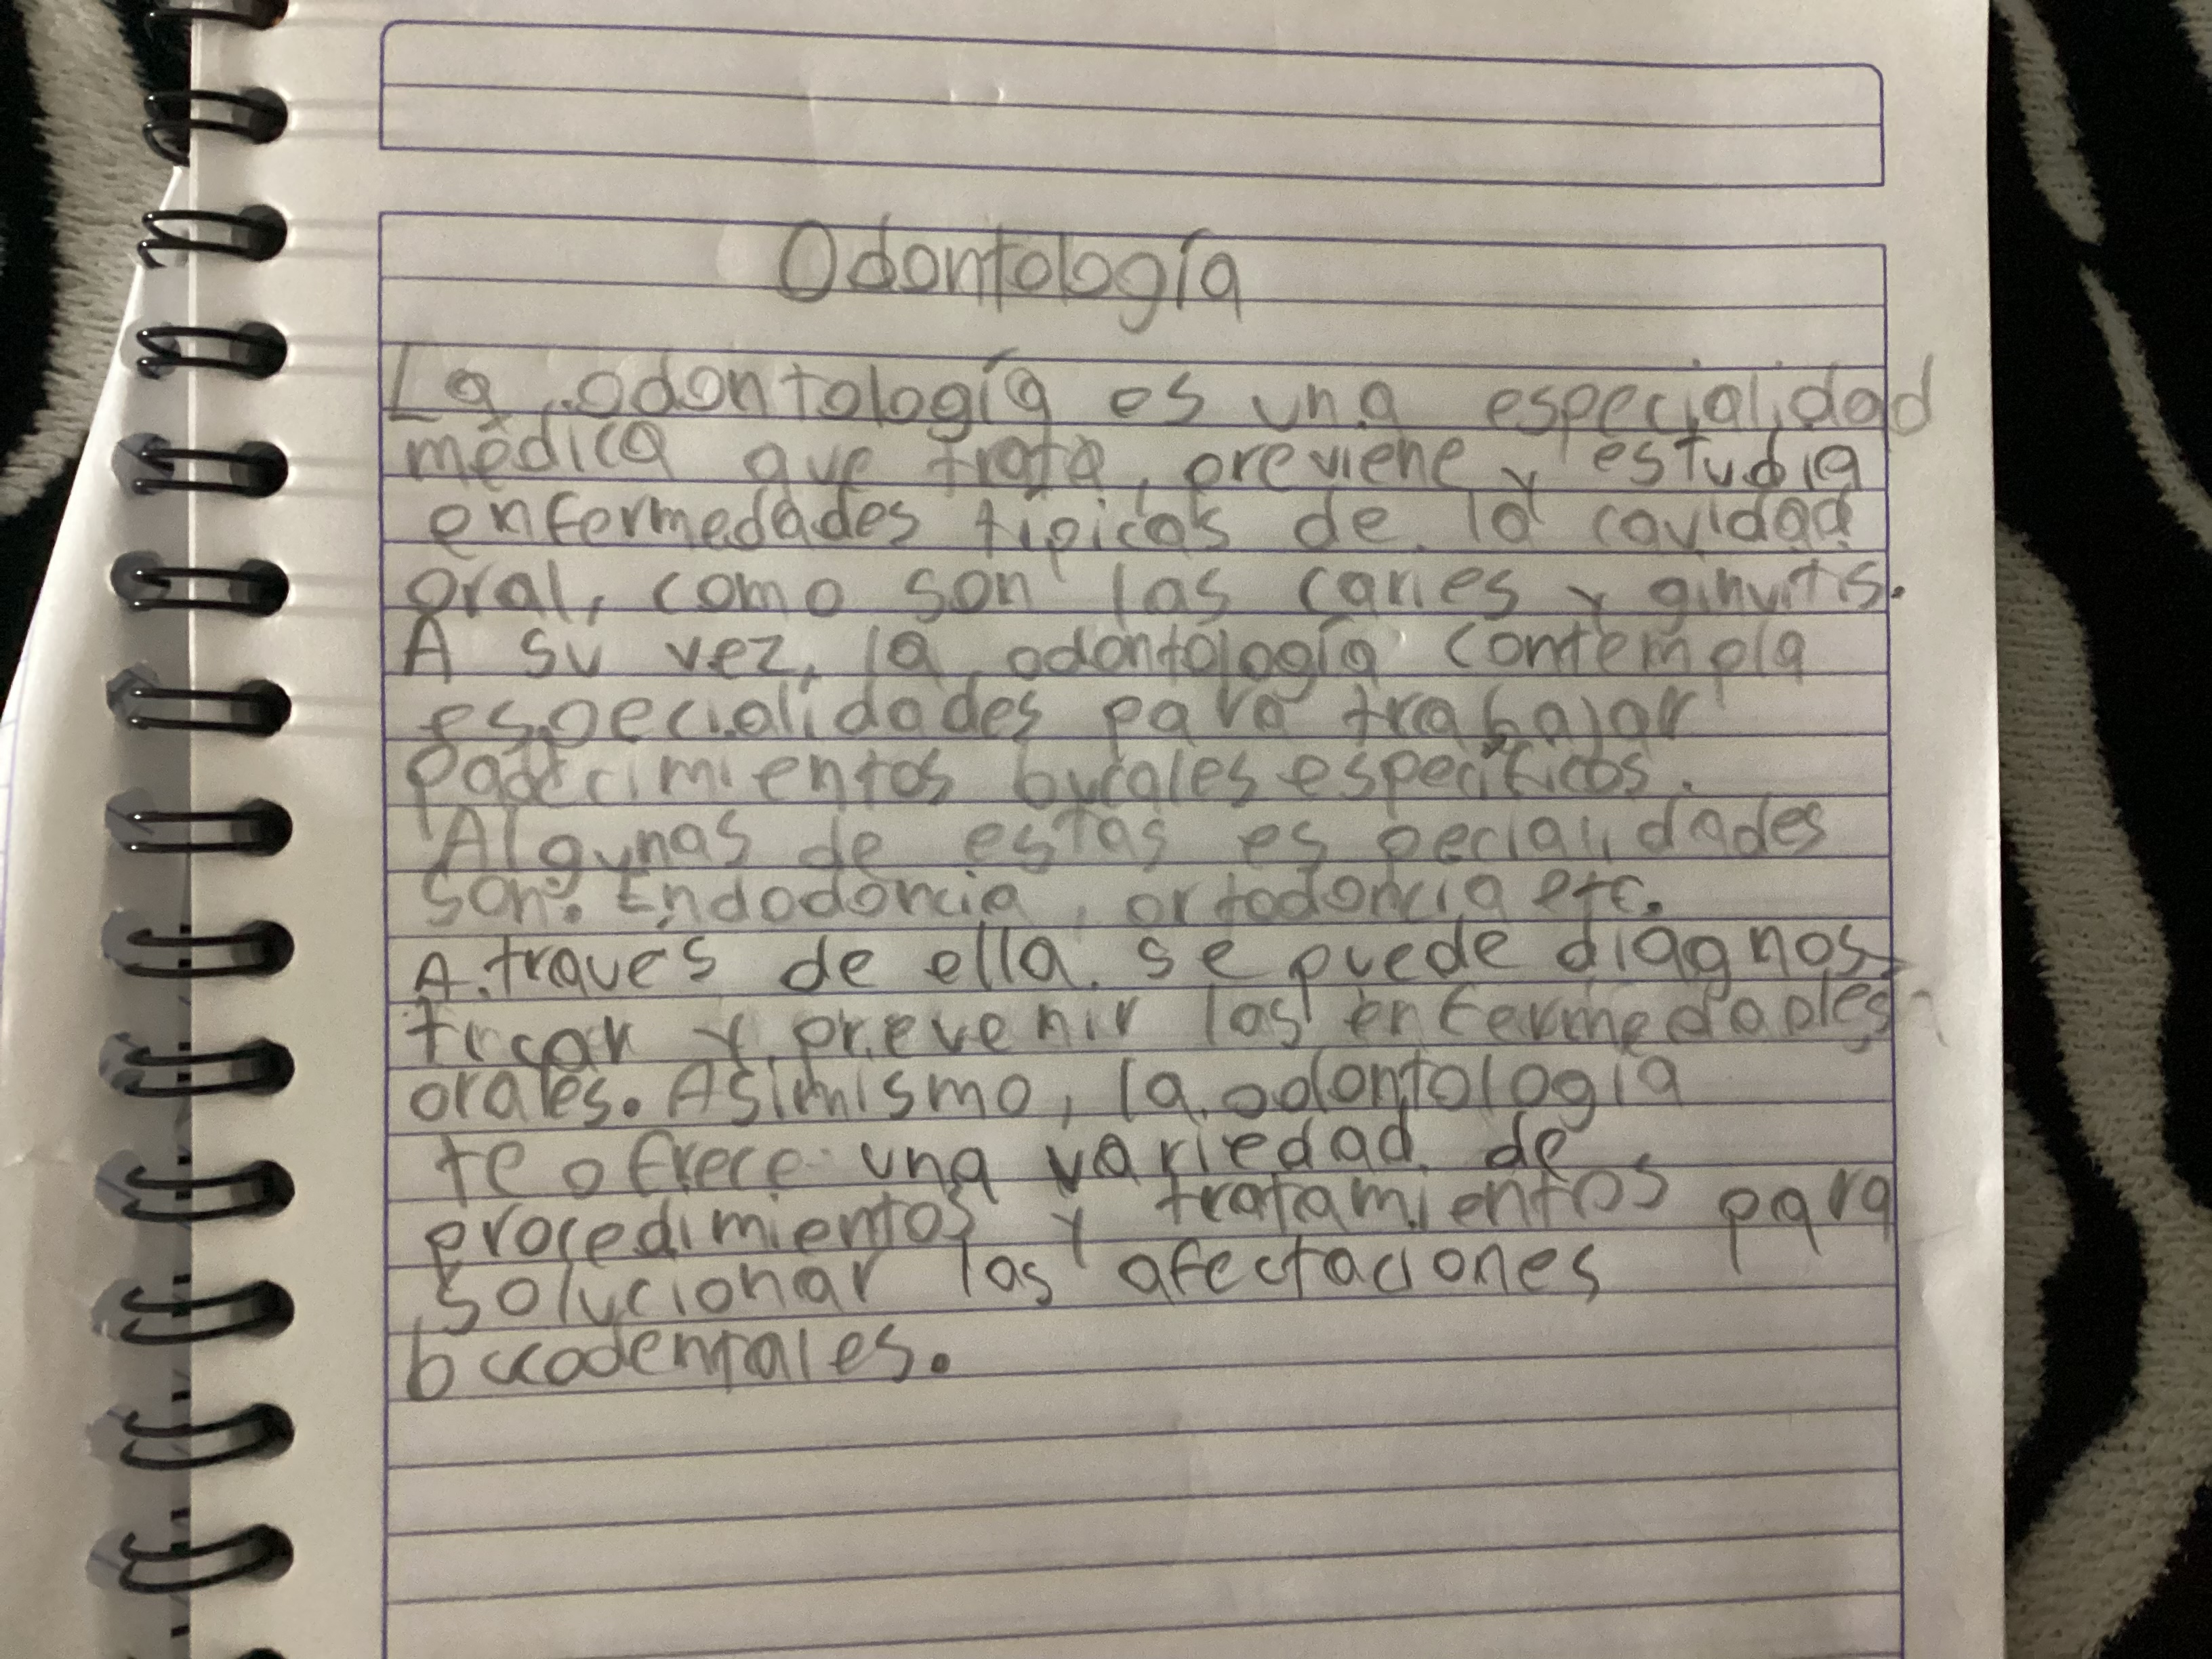 Odontología
La odontología es una especialidad
médica que trata, previene y estudia
enfermedades típicas de la cavidad
oral, como son las caries y ginvitis.
A su vez, la odontología contempla
especialidades para trabajar
padecimientos bucales específicos.
Algunas de estas especialidades
son: Endodoncia, ortodoncia etc.
A través de ella se puede diagnos-
ticar y prevenir las enfermedades
orales. Asimismo, la odontología
te ofrece una variedad de
procedimientos y tratamientos para
solucionar las afectaciones
bucodentales.